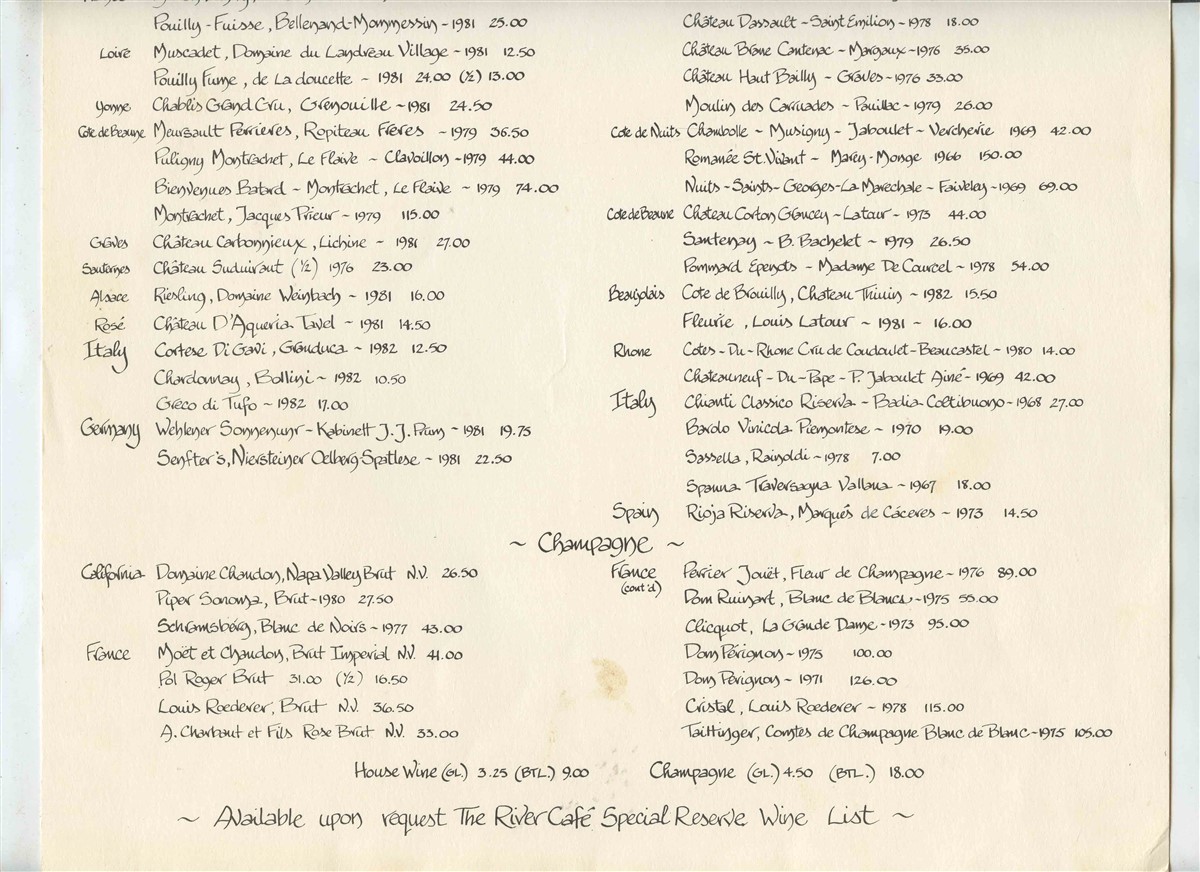 Pouilly-Fuisse, Bellenand-Mommessin-1981 25.00
Loire Muscadet, Domaine du Landreau Village-1981 12.50
Pouilly Fume, de La doucette ~ 1981 24.00 (½) 13.00
Yonne Chablis Grand Cru, Grenouille ~1981 24.50
Cote de Beaune Meursault Perrieres, Ropiteau Frères ~ 1979 36.50
Puligny Montrachet, Le Flaive ~ Clavoillon-1979 44.00
Bienvenues Batard ~ Montrachet, Le Flaive ~ 1979 74.00
Montrachet, Jacques Prieur ~ 1979 115.00
Graves Château Carbonnieux, Lichine ~ 1981 27.00
Sauternes Château Suduiraut (½) 1976 23.00
Alsace Riesling, Domaine Weinbach ~ 1981 16.00
Rosé Château D'Aqueria Tavel ~ 1981 14.50
Italy Cortese Di Gavi, Granduca ~ 1982 12.50
Chardonnay, Bollini ~ 1982 10.50
Greco di Tufo ~ 1982 17.00
Germany Wehlener Sonnenunr-Kabinett J.J. Prum ~ 1981 19.75
Senfter's, Niersteiner Oelberg-Spatlese ~ 1981 22.50
Château Dassault-Saint Emilion-1978 18.00
Château Brane Cantenac ~ Margaux-1976 35.00
Château Haut Bailly ~ Graves-1976 33.00
Moulin des Carruades ~ Pauillac ~ 1979 26.00
Cote de Nuits Chambolle ~ Musigny ~ Jaboulet ~ Vercherie 1969 42.00
Romanée St. Vivant ~ Marey-Monge 1966 150.00
Nuits-Saints-Georges-La Marechale ~ Faiveley-1969 69.00
Cote de Beaune Château Corton Grancey-Latour ~ 1973 44.00
Santenay ~ B. Bachelet ~ 1979 26.50
Pommard Epenots ~ Madame De Courcel ~ 1978 54.00
Beaujolais Cote de Brouilly, Château Thivin ~ 1982 15.50
Fleurie, Louis Latour ~ 1981 ~ 16.00
Rhone Cotes-Du-Rhone Cru de Coudoulet-Beaucastel ~ 1980 14.00
Chateauneuf-Du-Pape-P. Jaboulet Ainé-1969 42.00
Italy Chianti Classico Riserva ~ Badia Coltibuono-1968 27.00
Barolo Vinicola Piemontese ~ 1970 19.00
Sassella, Rainoldi ~ 1978 7.00
Spanna Traversagna Vallana ~ 1967 18.00
Spain Rioja Riserva, Marqués de Cáceres ~ 1973 14.50
~ Champagne ~
California Domaine Chandon, Napa Valley Brut N.V. 26.50
Piper Sonoma, Brut-1980 27.50
Schramsberg, Blanc de Noirs ~ 1977 43.00
France Moët et Chandon, Brut Imperial N.V. 41.00
Pol Roger Brut 31.00 (½) 16.50
Louis Roederer, Brut N.V. 36.50
A. Charbaut et Fils Rose Brut N.V. 33.00
France (cont'd) Perrier Jouët, Fleur de Champagne ~ 1976 89.00
Dom Ruinart, Blanc de Blancs ~ 1975 55.00
Clicquot, La Grande Dame ~ 1973 95.00
Dom Pérignon ~ 1975 100.00
Dom Perignon ~ 1971 126.00
Cristal, Louis Roederer ~ 1978 115.00
Taittinger, Comtes de Champagne Blanc de Blanc-1975 105.00
House Wine (GL.) 3.25 (BTL.) 9.00 Champagne (GL.) 4.50 (BTL.) 18.00
~ Available upon request The River Café Special Reserve Wine List ~